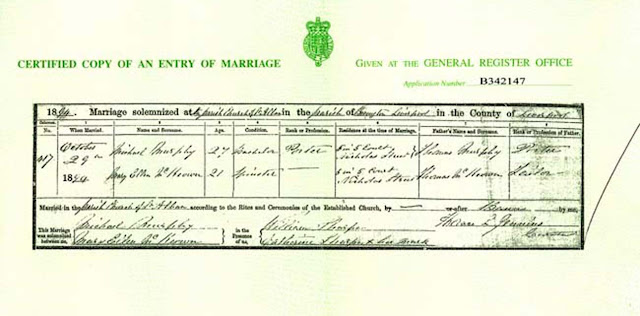 CERTIFIED COPY OF AN ENTRY OF MARRIAGE
GIVEN AT THE GENERAL REGISTER OFFICE
Application Number B342147
1894. Marriage solemnized at Parish Church St Alban in the Parish of Liverpool in the County of Liverpool
No. When Married. Name and Surname. Age. Condition. Rank or Profession. Residence at the time of Marriage. Father's Name and Surname. Rank or Profession of Father.
October 29 1894 Michael Murphy 27 Bachelor Porter 5 Court Nicholas Street Thomas Murphy
Mary Ellen McKeown 21 Spinster 5 Court Nicholas Street Thomas McKeown
Married in the Parish Church St Alban according to the Rites and Ceremonies of the Established Church, by — or after Banns by me,
This Marriage was solemnized between us, Michael Murphy
Mary Ellen McKeown
in the Presence of us, William
Catherine her mark